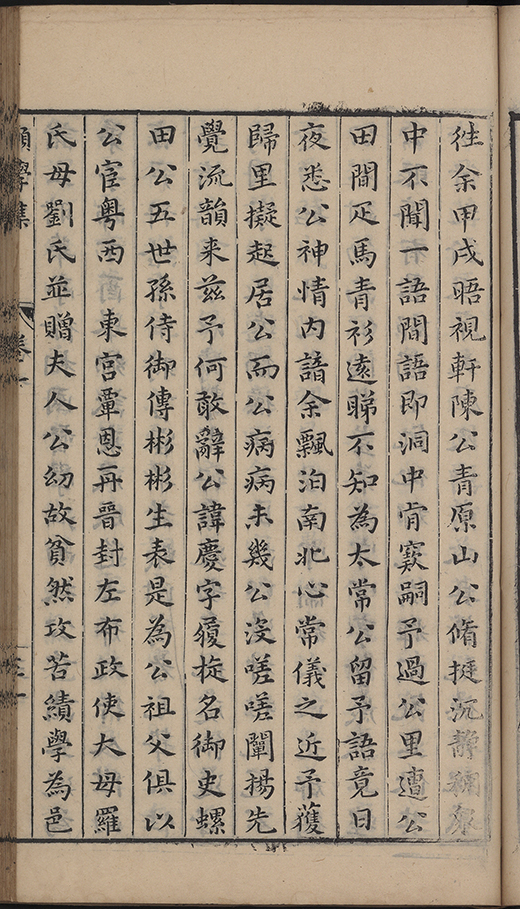 往余甲戌晤視軒陳公青原山公脩挺沉靜稠眾
中不聞一語間語即洞中肯窾嗣予過公里遭公
田間疋馬青衫遠睇不知為太常公留予語竟日
夜悉公神情内諳余飄泊南北心常儀之近予獲
歸里擬起居公而公病病未幾公沒嗟嗟闡揚先
覺流韻来茲予何敢辭公諱慶字履旋名御史螺
田公五世孫侍御傳彬彬生表是為公祖父俱以
公宦粤西東宮覃恩再晉封左布政使大母羅
氏母劉氏並贈夫人公幼故貧然攻苦績學為邑
願學集 卷